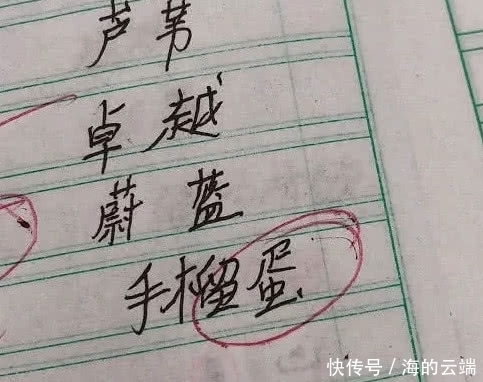 芦苇
卓越
蔚蓝
手榴蛋
快传号/海的云端